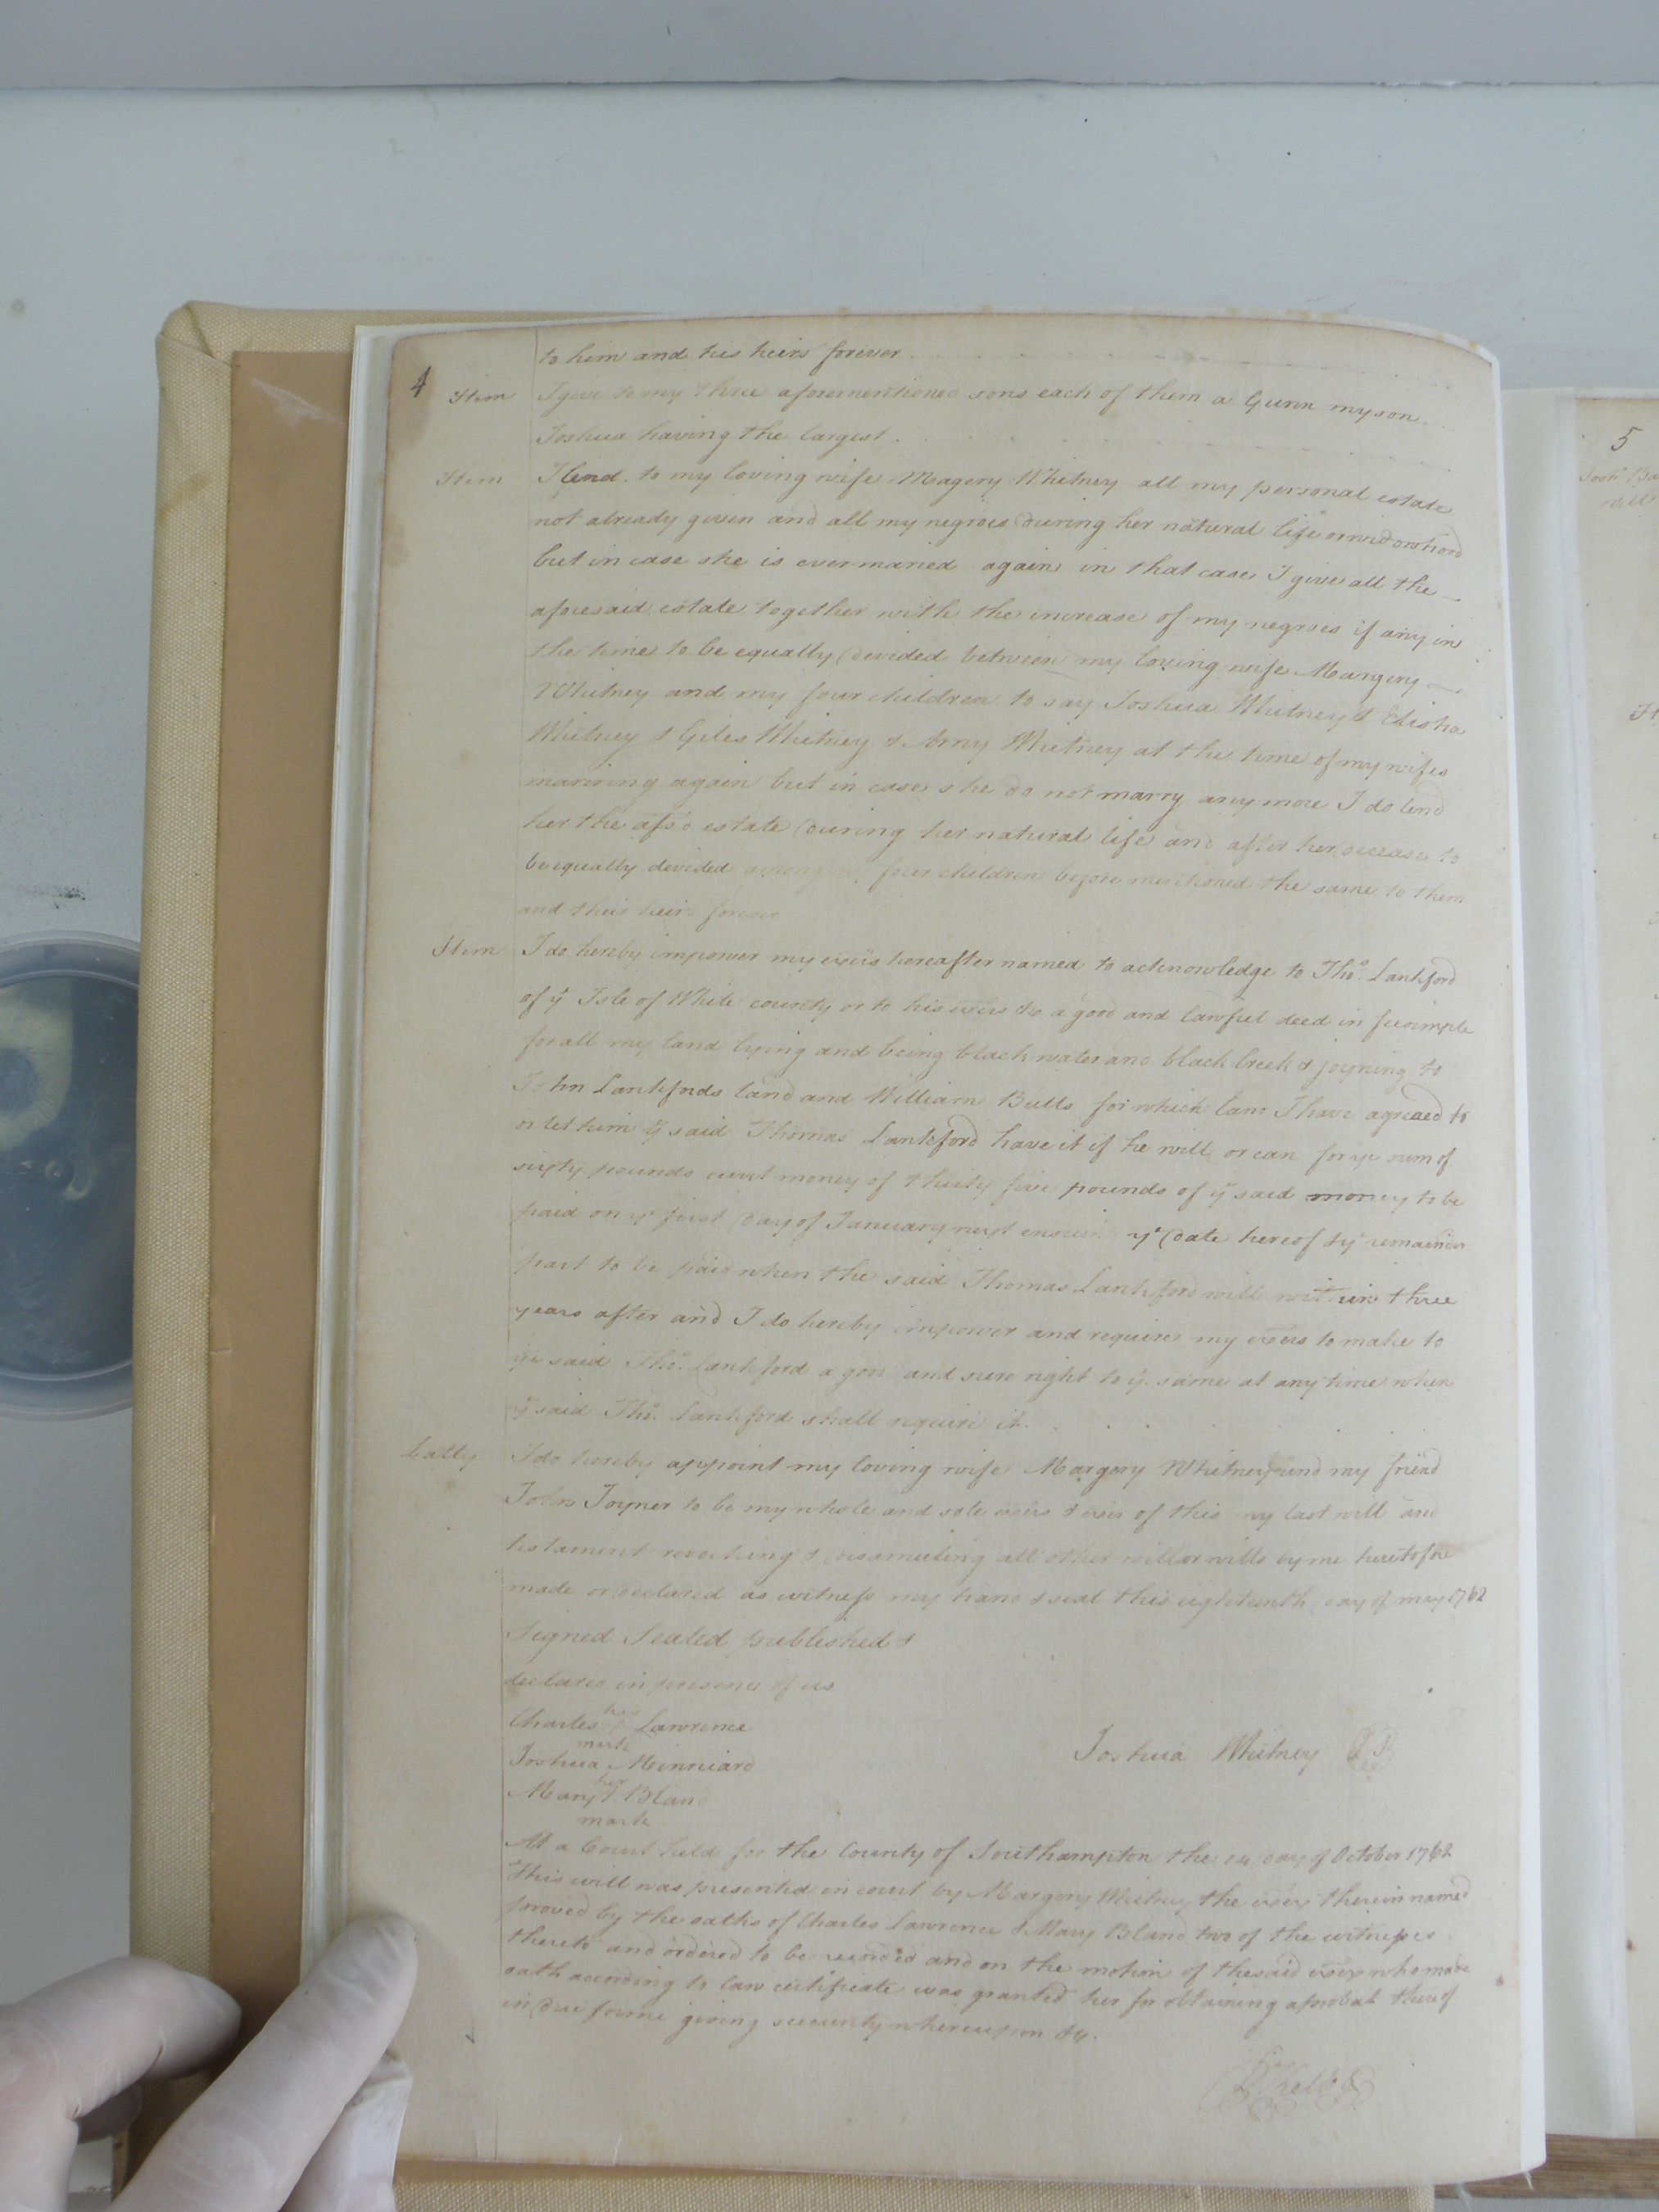 4
to him and his heirs forever
Item I give to my three aforementioned sons each of them a Gunn my son
Joshua having the largest
Item I lend to my loving wife Magery Whitney all my personal estate
not already given and all my negroes during her natural life or widowhood
but in case she is ever maried again in that case I give all the
aforesaid estate together with the increase of my negroes if any in
the time to be equally devided between my loving wife Margery
Whitney and my four children to say Joshua Whitney & Elisha
Whitney & Giles Whitney & Amy Whitney at the time of my wifes
mariring again but in case she do not marry any more I do lend
her the afsd estate during her natural life and after her decease to
be equally devided among my four children before mentioned the same to them
and their heirs forever
Item I do hereby impower my exors hereafter named to acknowledge to Thos. Lankford
of ye Isle of White county or to his exors &c a good and lawful deed in feesimple
for all my land lying and being black water and black Creek & joyning to
John Lankfords land and William Bulls for which land I have agreaed to
or let him ye said Thomas Lankford have it if he will or can for ye sum of
sixty pounds curt money of thirty five pounds of ye said money to be
paid on ye first day of January next ensuin ye date hereof & ye remainder
part to be paid when the said Thomas Lankford will within three
years after and I do hereby impower and require my exors to make to
ye said Thos. Lankford a good and sure right to ye same at any time when
ye said Thos. Lankford shall require it.
Latly I do hereby appoint my loving wife Margery Whitney and my friend
John Joyner to be my whole and sole exors & exer of this my last will and
testament revocking & all other will or wills by me heretofore
made or declared as witness my hand & seal this eighteenth day of may 1762
Signed Sealed published &
declared in presence of us
his
Charles Lawrence
mark
Joshua Minniard
Joshua Whitney
her
Mary Bland
mark
At a Court held for the County of Southampton the 14 day of October 1762
This will was presented in court by Margery Whitney the exex therein named
proved by the oaths of Charles Lawrence & Mary Bland two of the witnesses
thereto and ordered to be recorded and on the motion of the said exex who made
oath according to law certificate was granted her for obtaining aprobat thereof
in due forme giving security whereupon &c.
5
will